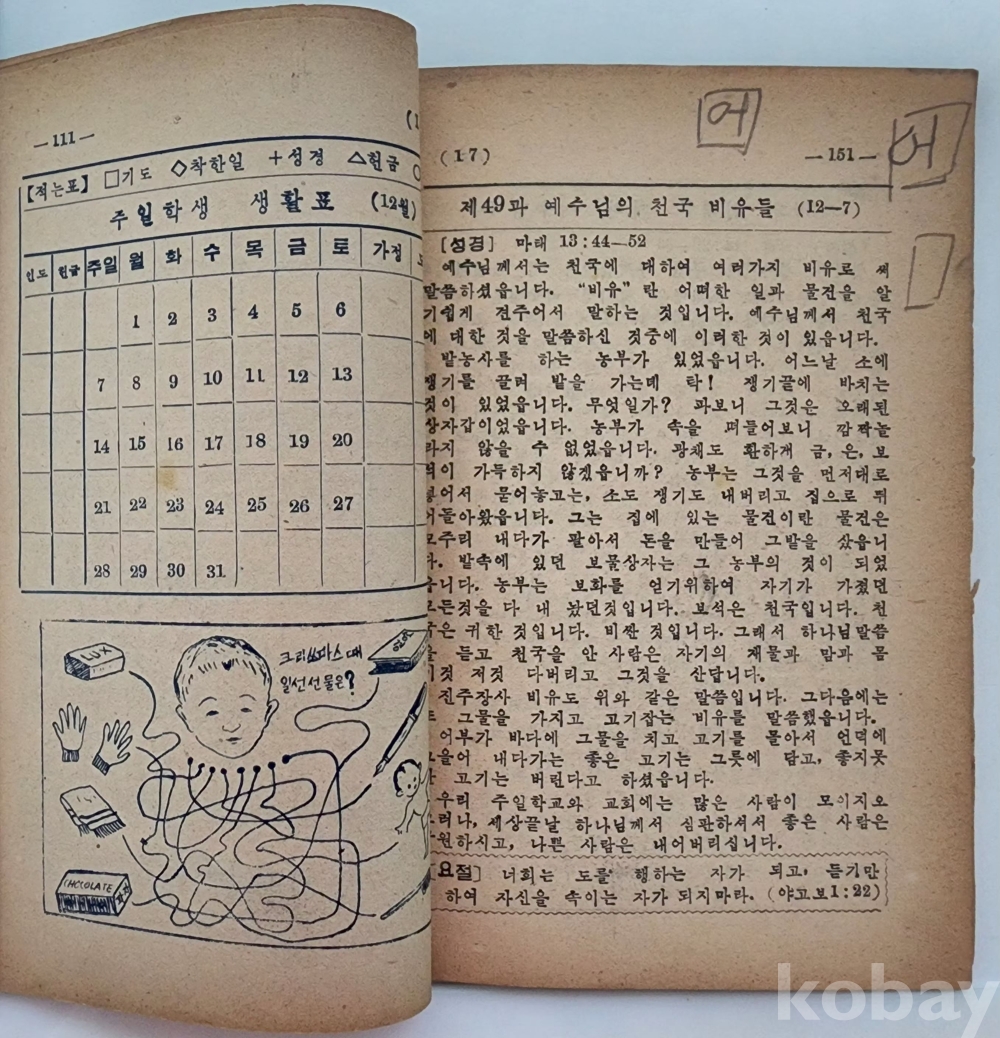 —111—
【적는표】 □기도 ◇착한일 +성경 △헌금
주일학생 생활표 (12월)
인도 헌금 주일 월 화 수 목 금 토 가정
1 2 3 4 5 6
7 8 9 10 11 12 13
14 15 16 17 18 19 20
21 22 23 24 25 26 27
28 29 30 31
LUX
크리쓰마스때
일선선물은?
CHOCOLATE
어
어
(17) —151—
제49과 예수님의 천국 비유들 (12—7)
[성경] 마태 13:44—52
예수님께서는 천국에 대하여 여러가지 비유로
말씀하셨읍니다. “비유”란 어떠한 일과 물건을 알
기쉽게 견주어서 말하는 것입니다. 예수님께서 천국
에 대한 것을 말씀하신 것중에 이러한 것이 있읍니다.
밭농사를 하는 농부가 있었읍니다. 어느날 소에
쟁기를 끌려 밭을 가는데 탁! 쟁기끝에 바치는
것이 있었읍니다. 무엇일가? 파보니 그것은 오래된
상자갑이었읍니다. 농부가 속을 떠들어보니 깜짝놀
라지 않을 수 없었읍니다. 광채도 환하게 금,은,보
이 가득하지 않겠읍니까? 농부는 그것을 먼저대로
어서 묻어놓고는, 소도 쟁기도 내버리고 집으로 뛰
어돌아왔읍니다. 그는 집에 있는 물건이란 물건은
모주리 내다가 팔아서 돈을 만들어 그밭을 샀읍니
다. 밭속에 있던 보물상자는 그 농부의 것이 되었
읍니다. 농부는 보화를 얻기위하여 자기가 가졌던
모든것을 다 내 놨던것입니다. 보석은 천국입니다. 천
국은 귀한 것입니다. 비싼 것입니다. 그래서 하나님말씀
을 듣고 천국을 안 사람은 자기의 재물과 맘과 몸
이것 저것 다버리고 그것을 산답니다.
진주장사 비유도 위와 같은 말씀입니다. 그다음에는
또 그물을 가지고 고기잡는 비유를 말씀했읍니다.
어부가 바다에 그물을 치고 고기를 몰아서 언덕에
끌어 내다가는 좋은 고기는 그릇에 담고, 좋지못
한 고기는 버린다고 하셨읍니다.
우리 주일학교와 교회에는 많은 사람이 모이지오
그러나, 세상끝날 하나님께서 심판하셔서 좋은 사람은
구원하시고, 나쁜 사람은 내어버리십니다.
[요절] 너희는 도를 행하는 자가 되고, 듣기만
하여 자신을 속이는 자가 되지마라. (야고보1:22)
kobay